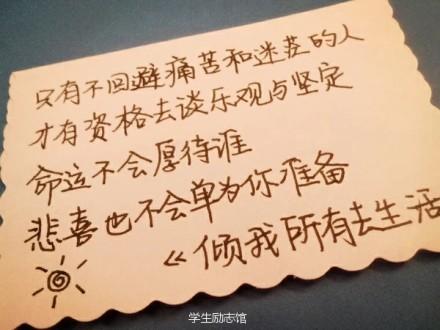 只有不回避痛苦和迷茫的人
才有资格去谈乐观与坚定
命运不会厚待谁
悲喜也不会单为你准备
《倾我所有去生活
学生励志馆